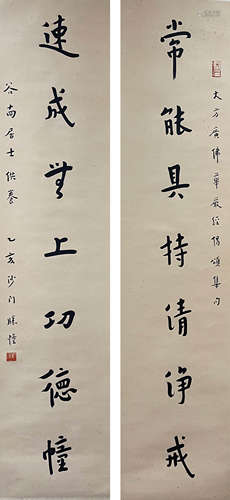 大方廣佛華嚴經偈頌集句
常能具持清淨戒
速成無上功德幢
居士供養
乙亥沙門勝幢